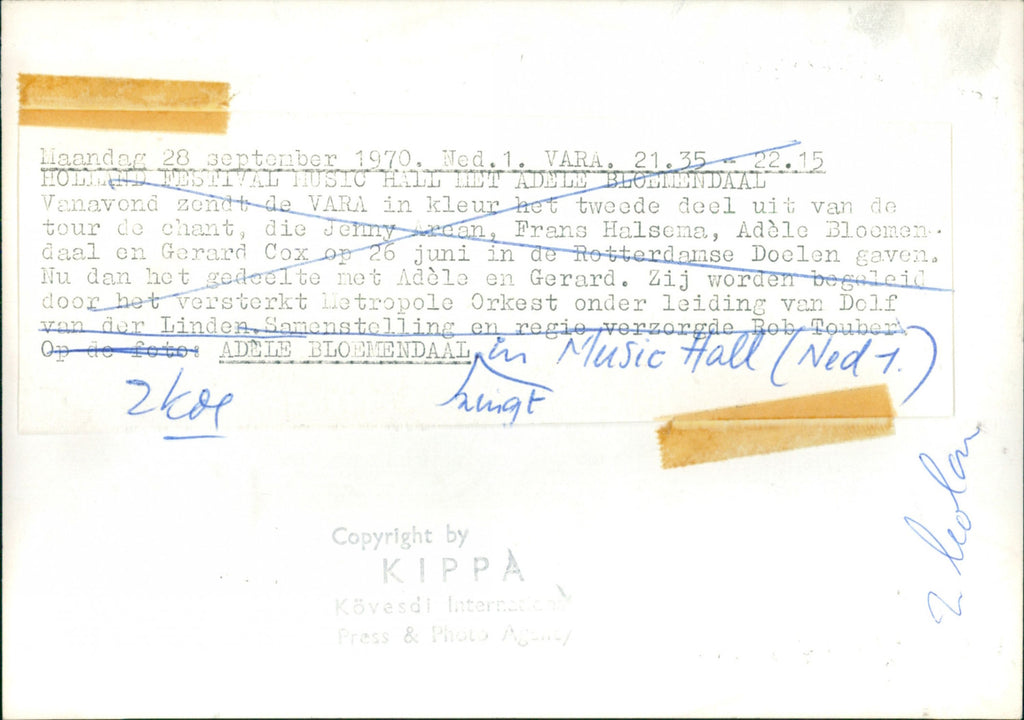 Maandag 28 september 1970. Ned.1. VARA. 21.35 - 22.15
HOLLAND FESTIVAL MUSIC HALL MET ADÈLE BLOEMENDAAL
Vanavond zendt de VARA in kleur het tweede deel uit van de
tour de chant, die Jenny Arean, Frans Halsema, Adèle Bloemen-
daal en Gerard Cox op 26 juni in de Rotterdamse Doelen gaven.
Nu dan het gedeelte met Adèle en Gerard. Zij worden begeleid
door het versterkt Metropole Orkest onder leiding van Dolf
van der Linden. Samenstelling en regie verzorgde Rob Touber.
Op de foto: ADÈLE BLOEMENDAAL in Music Hall (Ned 1.)
zingt
2 kol
2 kolom
Copyright by
KIPPA
Kövesdi International
Press & Photo Agency